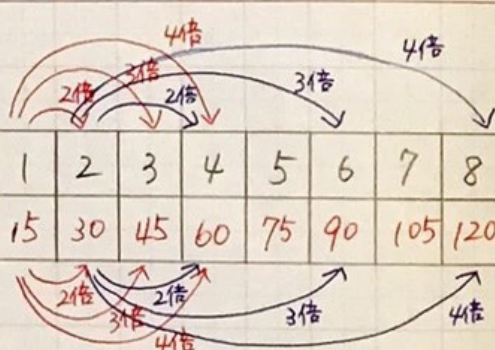 4倍 4倍
3倍 3倍
2倍 2倍
1 2 3 4 5 6 7 8
15 30 45 60 75 90 105 120
2倍 2倍 3倍 4倍
3倍
4倍